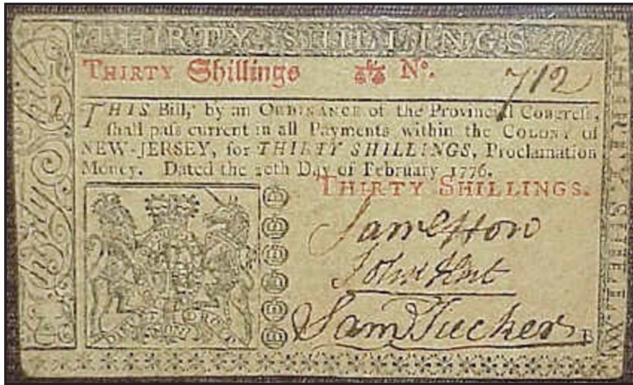 THIRTY SHILLINGS
THIRTY Shillings No. 712
THIS Bill, by an ORDINANCE of the Provincial Congress,
shall pass current in all Payments within the COLONY of
NEW-JERSEY, for THIRTY SHILLINGS, Proclamation
Money. Dated the 20th Day of February 1776.
THIRTY SHILLINGS.
Saml How
John Hart
Sam Tucker